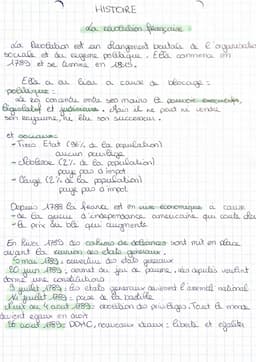 HISTOIRE
La révolution française :
La Révolution est un changement brutale de l'organisation
sociale et du régime politique. Elle commence en
1789 et se termine en 1815.
Elle a eu lieu à cause de blocage :
politique :
Le roi concentre entre ses mains le pouvoir exécutif,
législatif et judiciaire. Mais il ne peut ni vendre
son royaume, ni élu son successeur.
et sociaux :
- Tiers Etat (96% de la population)
aucun privilège
- Noblesse (2% de la population)
paye pas d'impot
- Clergé (2% de la population)
paye pas d'impot
Depuis 1788 la France est en crise économique a cause
- de la guerre d'indépendance américaine qui coute
- le prix du blé qui augmente
En 1789 des cahiers de doléances sont mit en place
avant la réunion des états généraux.
5 mai 1789 : ouverture des états généraux
20 juin 1789 : serment du jeu de paume, les députés veulent
donné une constitution
9 juillet 1789 : les états généraux devienent l'assemblé national
14 juillet 1789 : prise de la bastille
Nuit du 4 août 1789 : abolition des privilèges. Tout le monde
devient égaux en droit
26 août 1789 : DDHC, nouveaux idéaux : liberté et égalité